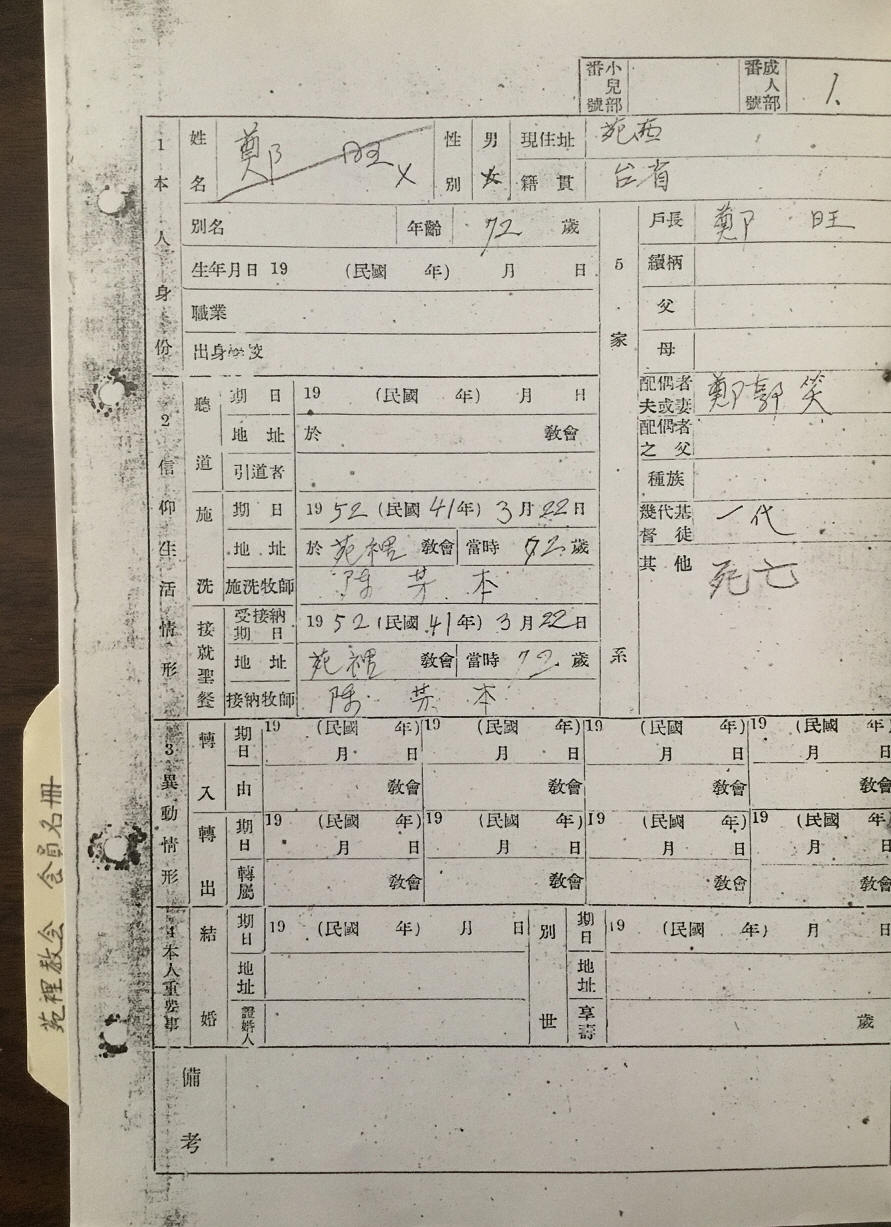 小兒部番號
成人部番號 1.
1 本人身份
姓名 鄭 旺
性別 男 女
現住址 苑西
籍貫 台省
別名
年齡 72 歲
生年月日 19 (民國 年) 月 日
職業
出身學校
5 家系
戶長 鄭 旺
續柄
父
母
配偶者夫或妻 鄭郭笑
配偶者之父
種族
幾代基督徒 一代
其他 死亡
2 信仰生活情形
聽道
期日 19 (民國 年) 月 日
地址 於 教會
引道者
施洗
期日 1952 (民國41年) 3月22日
地址 於 苑裡 教會 當時 72 歲
施洗牧師 陳 芳 本
接就聖餐
受接納期日 1952 (民國41年) 3月22日
地址 苑裡 教會 當時 72 歲
接納牧師 陳 芳 本
3 異動情形
轉入
期日 19 (民國 年) 月 日 19 (民國 年) 月 日 19 (民國 年) 月 日 19 (民國 年) 月 日
由 教會 教會 教會 教會
轉出
期日 19 (民國 年) 月 日 19 (民國 年) 月 日 19 (民國 年) 月 日 19 (民國 年) 月 日
轉屬 教會 教會 教會 教會
4 本人重要事
結婚
期日 19 (民國 年) 月 日
地址
證婚人
別世
期日 19 (民國 年) 月 日
地址
享壽 歲
備考
苑裡教会 会員名冊